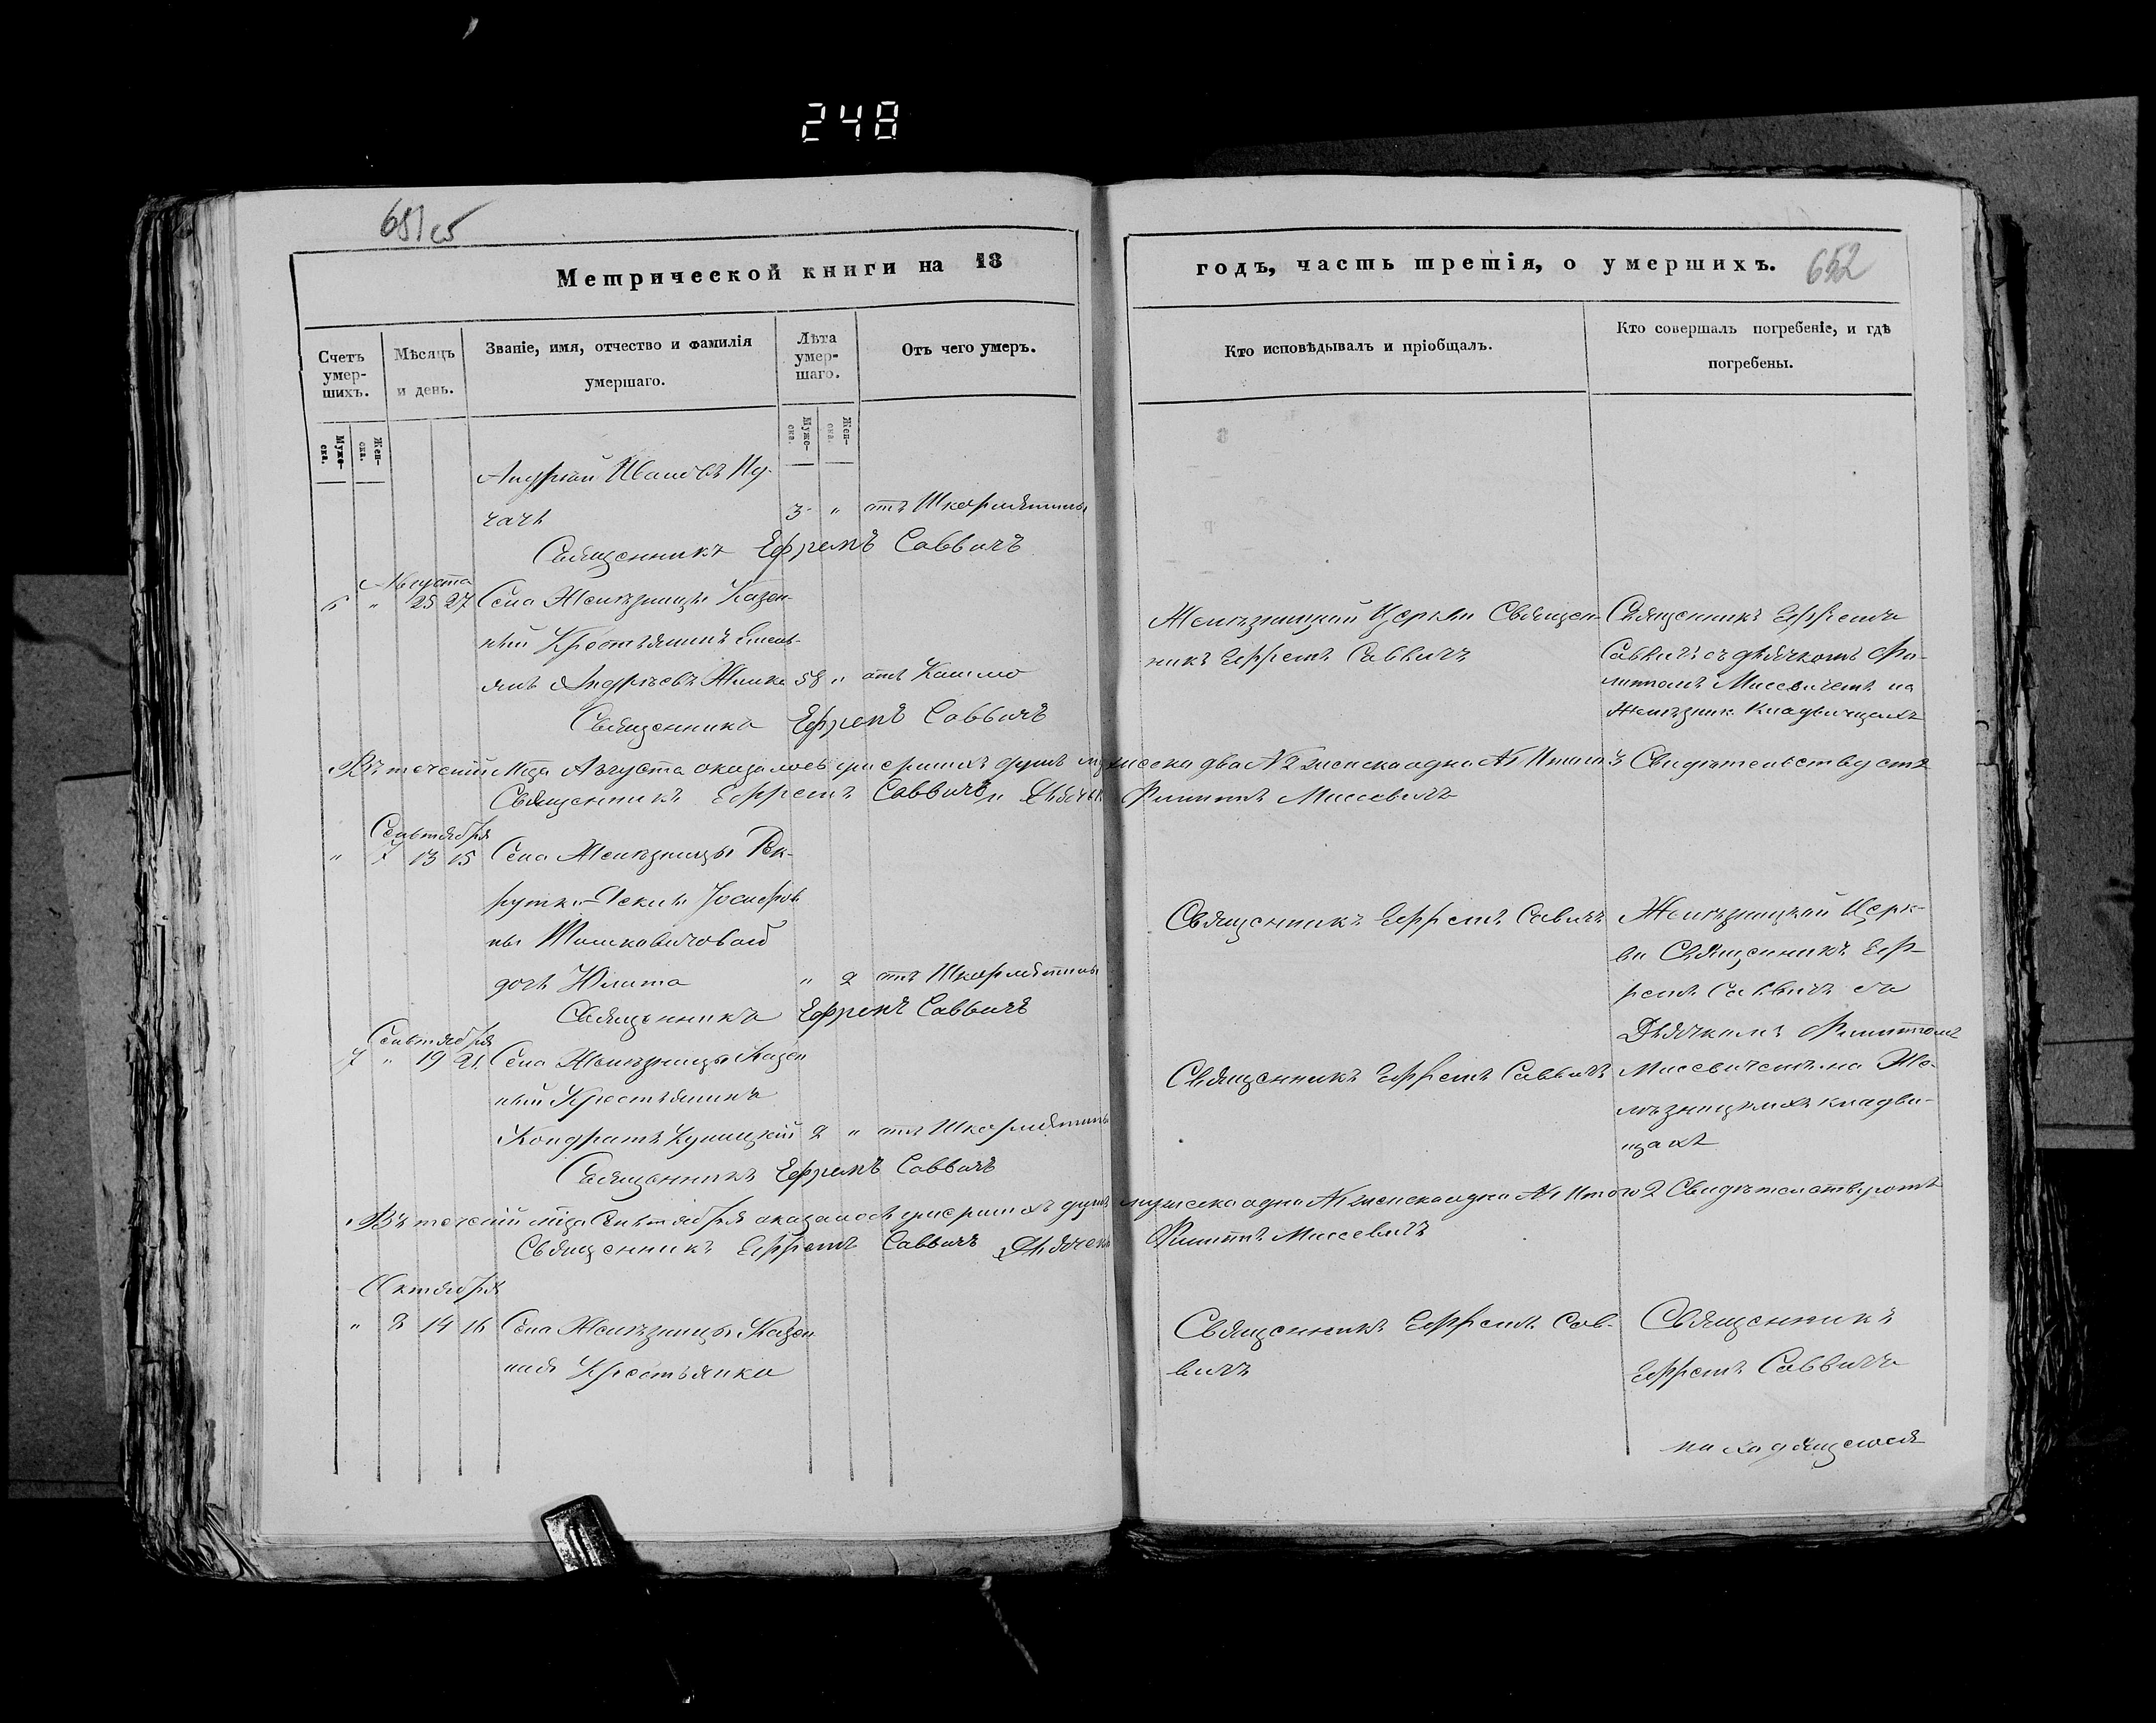 248
651об
652
Метрической книги на 18
годъ, часть третія, о умершихъ.
Счетъ умер-шихъ.
Мѣсяцъ и день.
Званіе, имя, отчество и фамилія умершаго.
Лѣта умер-шаго.
Отъ чего умеръ.
Кто исповѣдывалъ и пріобщалъ.
Кто совершалъ погребеніе, и гдѣ погребены.
Муже-ска.
Жен-ска.
Муже-ска.
Жен-ска.
Андрей Ивановъ
3 " отъ Шкарлятины
Священникъ Ефремъ Саввичъ
Августа
6 " 25 27 Села Желѣзницы Казен-
ный Крестьянинъ Емель-
янъ Андреевъ 58 " отъ Кашлю
Желѣзницкой Церкви Священ-
никъ Ефремъ Саввичъ
Священникъ Ефремъ
Саввичъ съ дьячкомъ Фи-
липпомъ Миссевичемъ на
Желѣзниц. Кладвищахъ
Священникъ Ефремъ Саввичъ
Въ теченіи Мца Августа оказалось умершихъ душъ мужеска два № 2 женска одна № 1 Итого 3 Свидѣтельствуетъ
Священникъ Ефремъ Саввичъ и Дьячекъ Филиппъ Миссевичъ
Сентября
" 7 13 15 Села Желѣзницы Рек-
рутки Феклы Іосифов-
ны
дочь Улита " 2 отъ Шкарлятины
Священникъ Ефремъ Савичъ
Желѣзницкой Церк-
ви Священникъ Еф-
ремъ Саввичъ съ
Дьячкомъ Филиппомъ
Миссевичемъ на Же-
лѣзницкихъ кладви-
щахъ
Священникъ Ефремъ Саввичъ
Сентября
7 " 19 21 Села Желѣзницы Казен
ный Крестьянинъ
Кондратъ 2 " отъ Шкарлятины
Священникъ Ефремъ Саввичъ
Священникъ Ефремъ Саввичъ
Въ теченіи мца Сентября оказалось умершихъ душъ мужеска одна № 1 женска одна № 1 Итого 2 Свидѣтельствуютъ
Священникъ Ефремъ Саввичъ Дьячекъ Филиппъ Миссевичъ
Октября
" 8 14 16 Села Желѣзницы Казен
ная Крестьянка
Священникъ Ефремъ Сав-
вичъ
Священникъ
Ефремъ Саввичъ